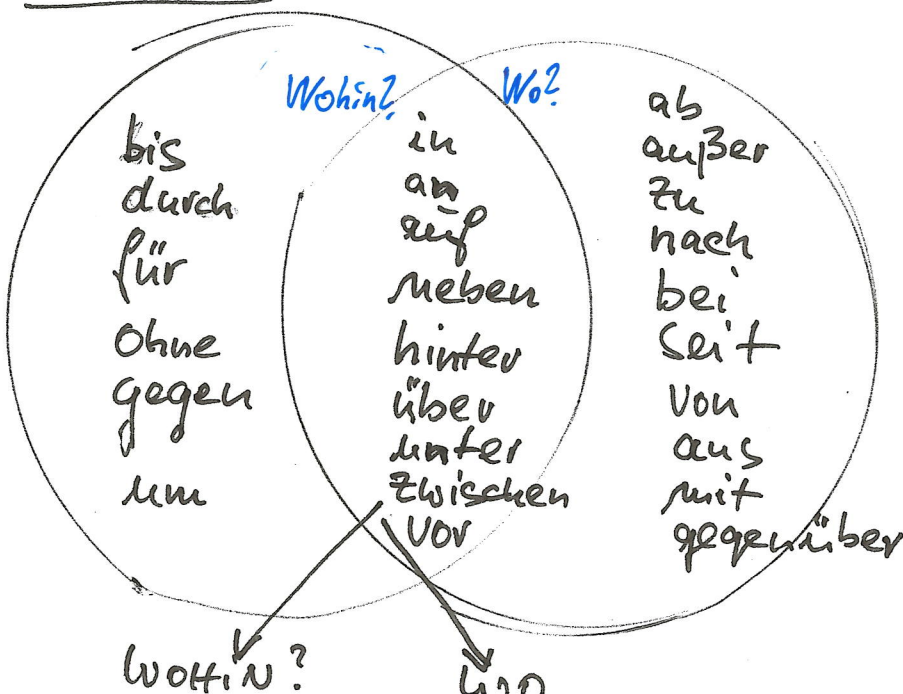 Wohin? Wo?
bis
durch
für
ohne
gegen
um
in
an
auf
neben
hinter
über
unter
zwischen
vor
ab
außer
zu
nach
bei
seit
von
aus
mit
gegenüber
WOHIN?